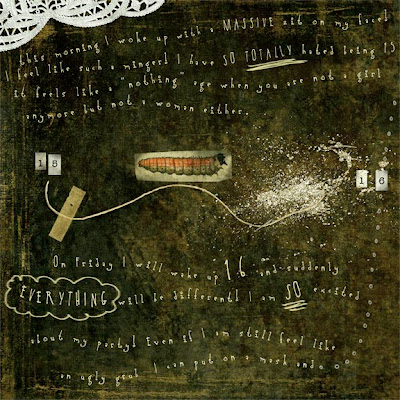 this morning I woke up with a MASSIVE zit on my face!
I feel like such a minger! I have SO TOTALLY hated being 15
it feels like a "nothing" age when you are not a girl
anymore but not a woman either.
15
16
On Friday I will wake up 16 and suddenly
EVERYTHING will be different! I am SO excited
about my party! Even if I am still feel like
an ugly I can put on a mask and